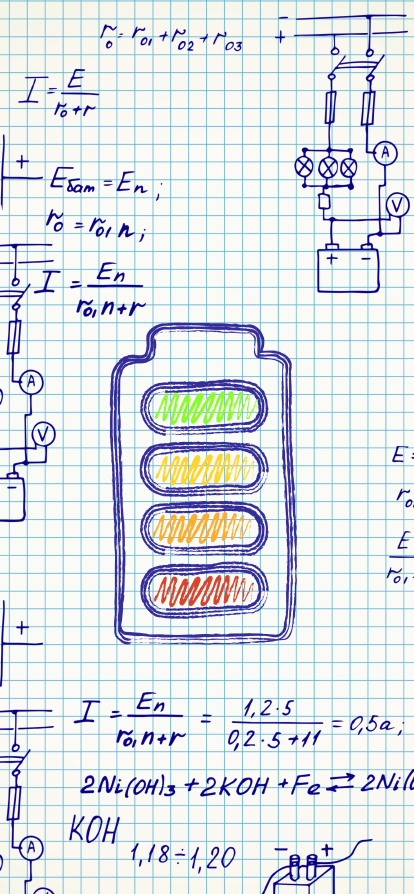 r₀ = r₀₁ + r₀₂ + r₀₃
− +
I = E / r₀ + r
A
+
Eбат = En;
V
r₀ = r₀₁ n;
+ −
I = En / r₀₁n + r
A
V
E =
−
r₀
E
r₀₁
+
I = En / r₀₁n + r = 1,2·5 / 0,2·5 + 11 = 0,5a;
2Ni(OH)₃ + 2KOH + Fe ⇄ 2Ni(
KOH
A
1,18 ÷ 1,20
− +